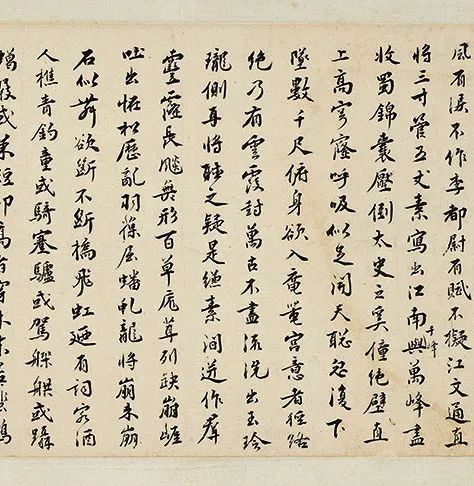 風有詩不作李都尉有賦不擬江文通直
將三寸管五丈素寫出江南千峰與萬峰盡
收蜀錦囊壓倒太史之奚僮絕壁直
上高穹窿呼吸似足聞天聰忽復下
墜數千尺俯身欲入黿鼉宮意者徑路
絕乃有雲霞封萬古不盡流洗出玉玲
瓏側耳將聽之疑是縑素澗迸作群
霳長飈無形百草尨茸列缺崩崖
吐出怪松歷亂羽葆屈蟠虬龍將崩未崩
石似斧欲斷不斷橋飛虹廼有詞客酒
人樵青釣童或騎蹇驢或駕舴艋或躡